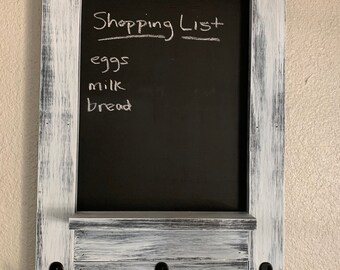 Shopping List
eggs
milk
bread